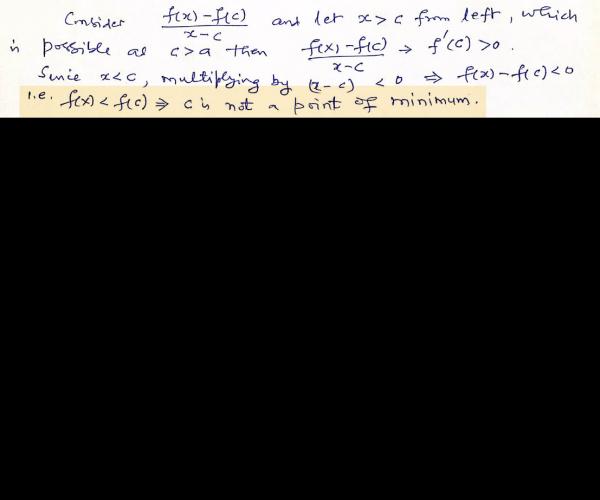 Consider f(x)-f(c)/x-c and let x > c from left, which
is possible as c>a then f(x)-f(c)/x-c → f'(c) >0.
Sinie x<c, multiplying by (x-c) <0 ⇒ f(x)-f(c)<0
i.e. f(x) < f(c) ⇒ c is not a point of minimum.